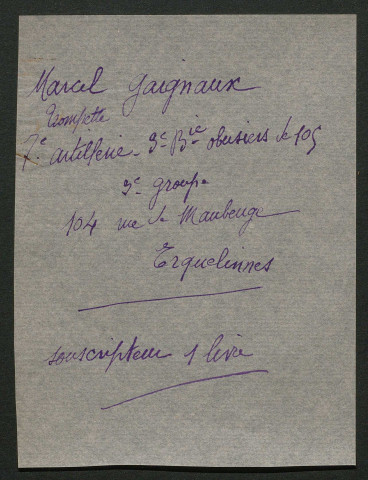 Marcel Gaignaux
Trompette
7e artillerie - 9e Bie obusiers de 105
3e groupe
104 rue de Maubeuge
Erquelinnes
souscripteur 1 livre